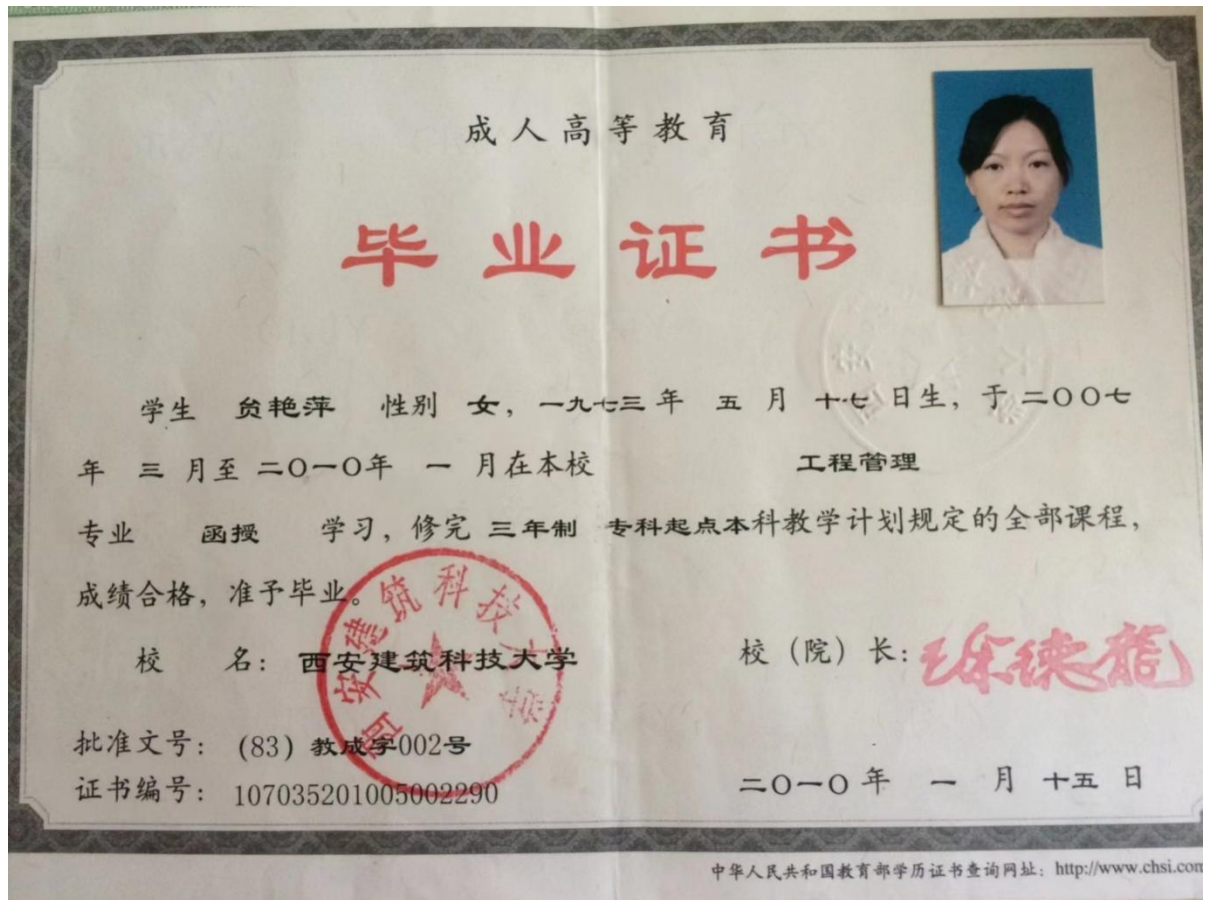 成人高等教育
毕业证书
学生 贠艳萍 性别 女，一九七三年 五 月 十七 日生，于二〇〇七
年 三 月至 二〇一〇年 一 月在本校 工程管理
专业 函授 学习，修完 三年制 专科起点本科教学计划规定的全部课程，
成绩合格，准予毕业。
西安建筑科技大学
校 名：西安建筑科技大学
校（院）长：徐德龍
批准文号：(83) 教成字002号
证书编号：107035201005002290
二〇一〇年 一 月 十五 日
中华人民共和国教育部学历证书查询网址：http://www.chsi.com